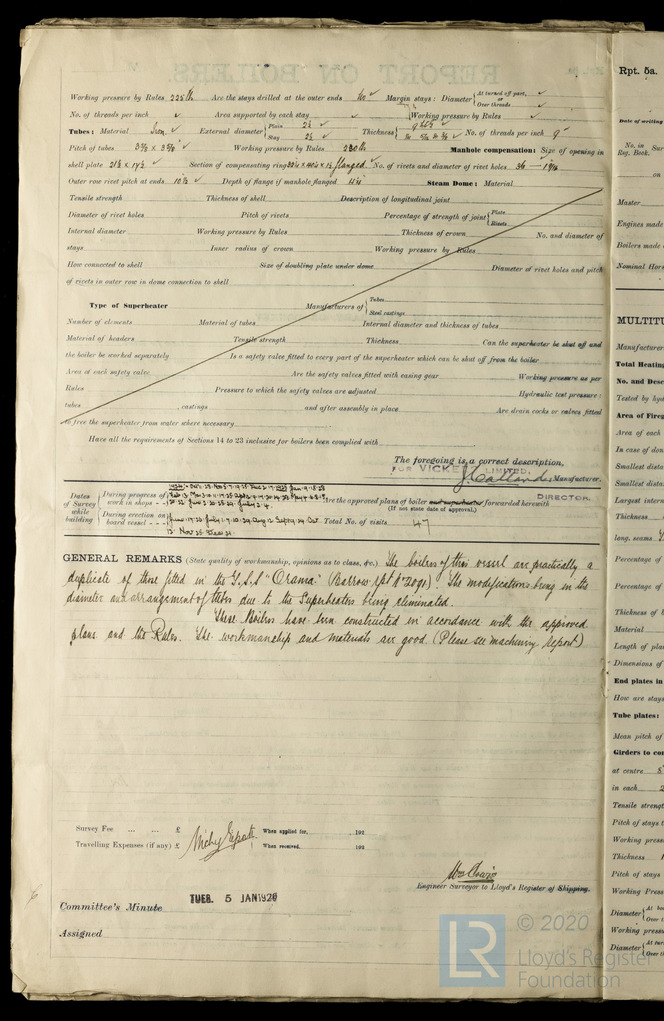 Working pressure by Rules 225 lb Are the stays drilled at the outer ends No Margin stays: Diameter { At turned off part, or Over threads
No. of threads per inch Area supported by each stay Working pressure by Rules
Tubes: Material Iron External diameter { Plain 2½ Stay 2½ Thickness { No. of threads per inch 9
Pitch of tubes Working pressure by Rules Manhole compensation: Size of opening in
shell plate Section of compensating ring flanged No. of rivets and diameter of rivet holes 36
Outer row rivet pitch at ends 10½ Depth of flange if manhole flanged Steam Dome: Material
Tensile strength Thickness of shell Description of longitudinal joint
Diameter of rivet holes Pitch of rivets Percentage of strength of joint { Plate Rivets
Internal diameter Working pressure by Rules Thickness of crown No. and diameter of
stays Inner radius of crown Working pressure by Rules
How connected to shell Size of doubling plate under dome Diameter of rivet holes and pitch
of rivets in outer row in dome connection to shell
Type of Superheater Manufacturers of { Tubes Steel castings
Number of elements Material of tubes Internal diameter and thickness of tubes
Material of headers Tensile strength Thickness Can the superheater be shut off and
the boiler be worked separately Is a safety valve fitted to every part of the superheater which can be shut off from the boiler
Area of each safety valve Are the safety valves fitted with easing gear Working pressure as per
Rules Pressure to which the safety valves are adjusted Hydraulic test pressure:
tubes castings and after assembly in place Are drain cocks or valves fitted
to free the superheater from water where necessary
Have all the requirements of Sections 14 to 23 inclusive for boilers been complied with
The foregoing is a correct description,
FOR VICKERS LIMITED, Manufacturer.
DIRECTOR.
Dates of Survey while building { During progress of work in shops - - Are the approved plans of boiler forwarded herewith
(If not state date of approval.)
During erection on board vessel - - - Total No. of visits 47
GENERAL REMARKS (State quality of workmanship, opinions as to class, &c.) The boilers of this vessel are practically a
duplicate of those fitted in the "Orama" (Barrow rpt No 2091) The modifications being in the
diameter and arrangement of tubes due to the Superheaters being eliminated.
These Boilers have been constructed in accordance with the approved
plans and the Rules. The workmanship and materials are good (Please see machinery Report)
Survey Fee ... ... £ When applied for, 192
Travelling Expenses (if any) £ When received, 192
Engineer Surveyor to Lloyd's Register of Shipping.
Committee's Minute TUES. 5 JAN 1926
Assigned
Rpt. 5a.
Date of writing
No. in Reg. Book.
on
Master
Engines made
Boilers made
Nominal Hors
MULTITU
Manufacturer
Total Heating
No. and Desc
Tested by hyd
Area of Fireg
Area of each
In case of don
Smallest dista
Smallest dista
Largest intern
Thickness
long. seams
Percentage of
Percentage of
Thickness of b
Material
Length of plai
Dimensions of
End plates in
How are stays
Tube plates:
Mean pitch of
Girders to co
at centre
in each
Tensile strengt
Pitch of stays
Working press
Thickness
Pitch of stays
Working Press
Diameter { At bo Over t
Working pressu
Diameter { At tur Over t
LR © 2020
Lloyd's Register
Foundation